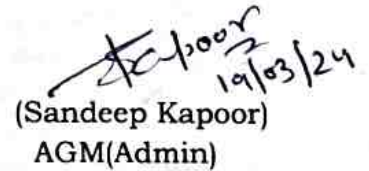 Skapoor
19/03/24
(Sandeep Kapoor)
AGM(Admin)